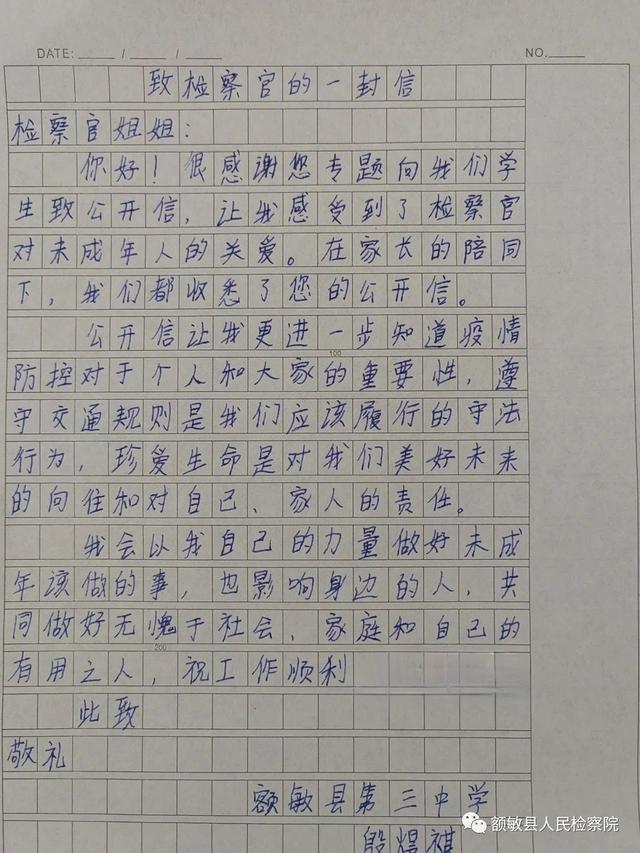 DATE: ____ / ____ / ____ NO. ____
致检察官的一封信
检察官姐姐：
你好！很感谢您专题向我们学
生致公开信，让我感受到了检察官
对未成年人的关爱。在家长的陪同
下，我们都收悉了您的公开信。
公开信让我更进一步知道疫情
100
防控对于个人和大家的重要性，遵
守交通规则是我们应该履行的守法
行为，珍爱生命是对我们美好未来
的向往和对自己、家人的责任。
我会以我自己的力量做好未成
年该做的事，也影响身边的人，共
同做好无愧于社会、家庭和自己的
200
有用之人，祝工作顺利
此致
敬礼
额敏县第三中学
殷煜祺
额敏县人民检察院